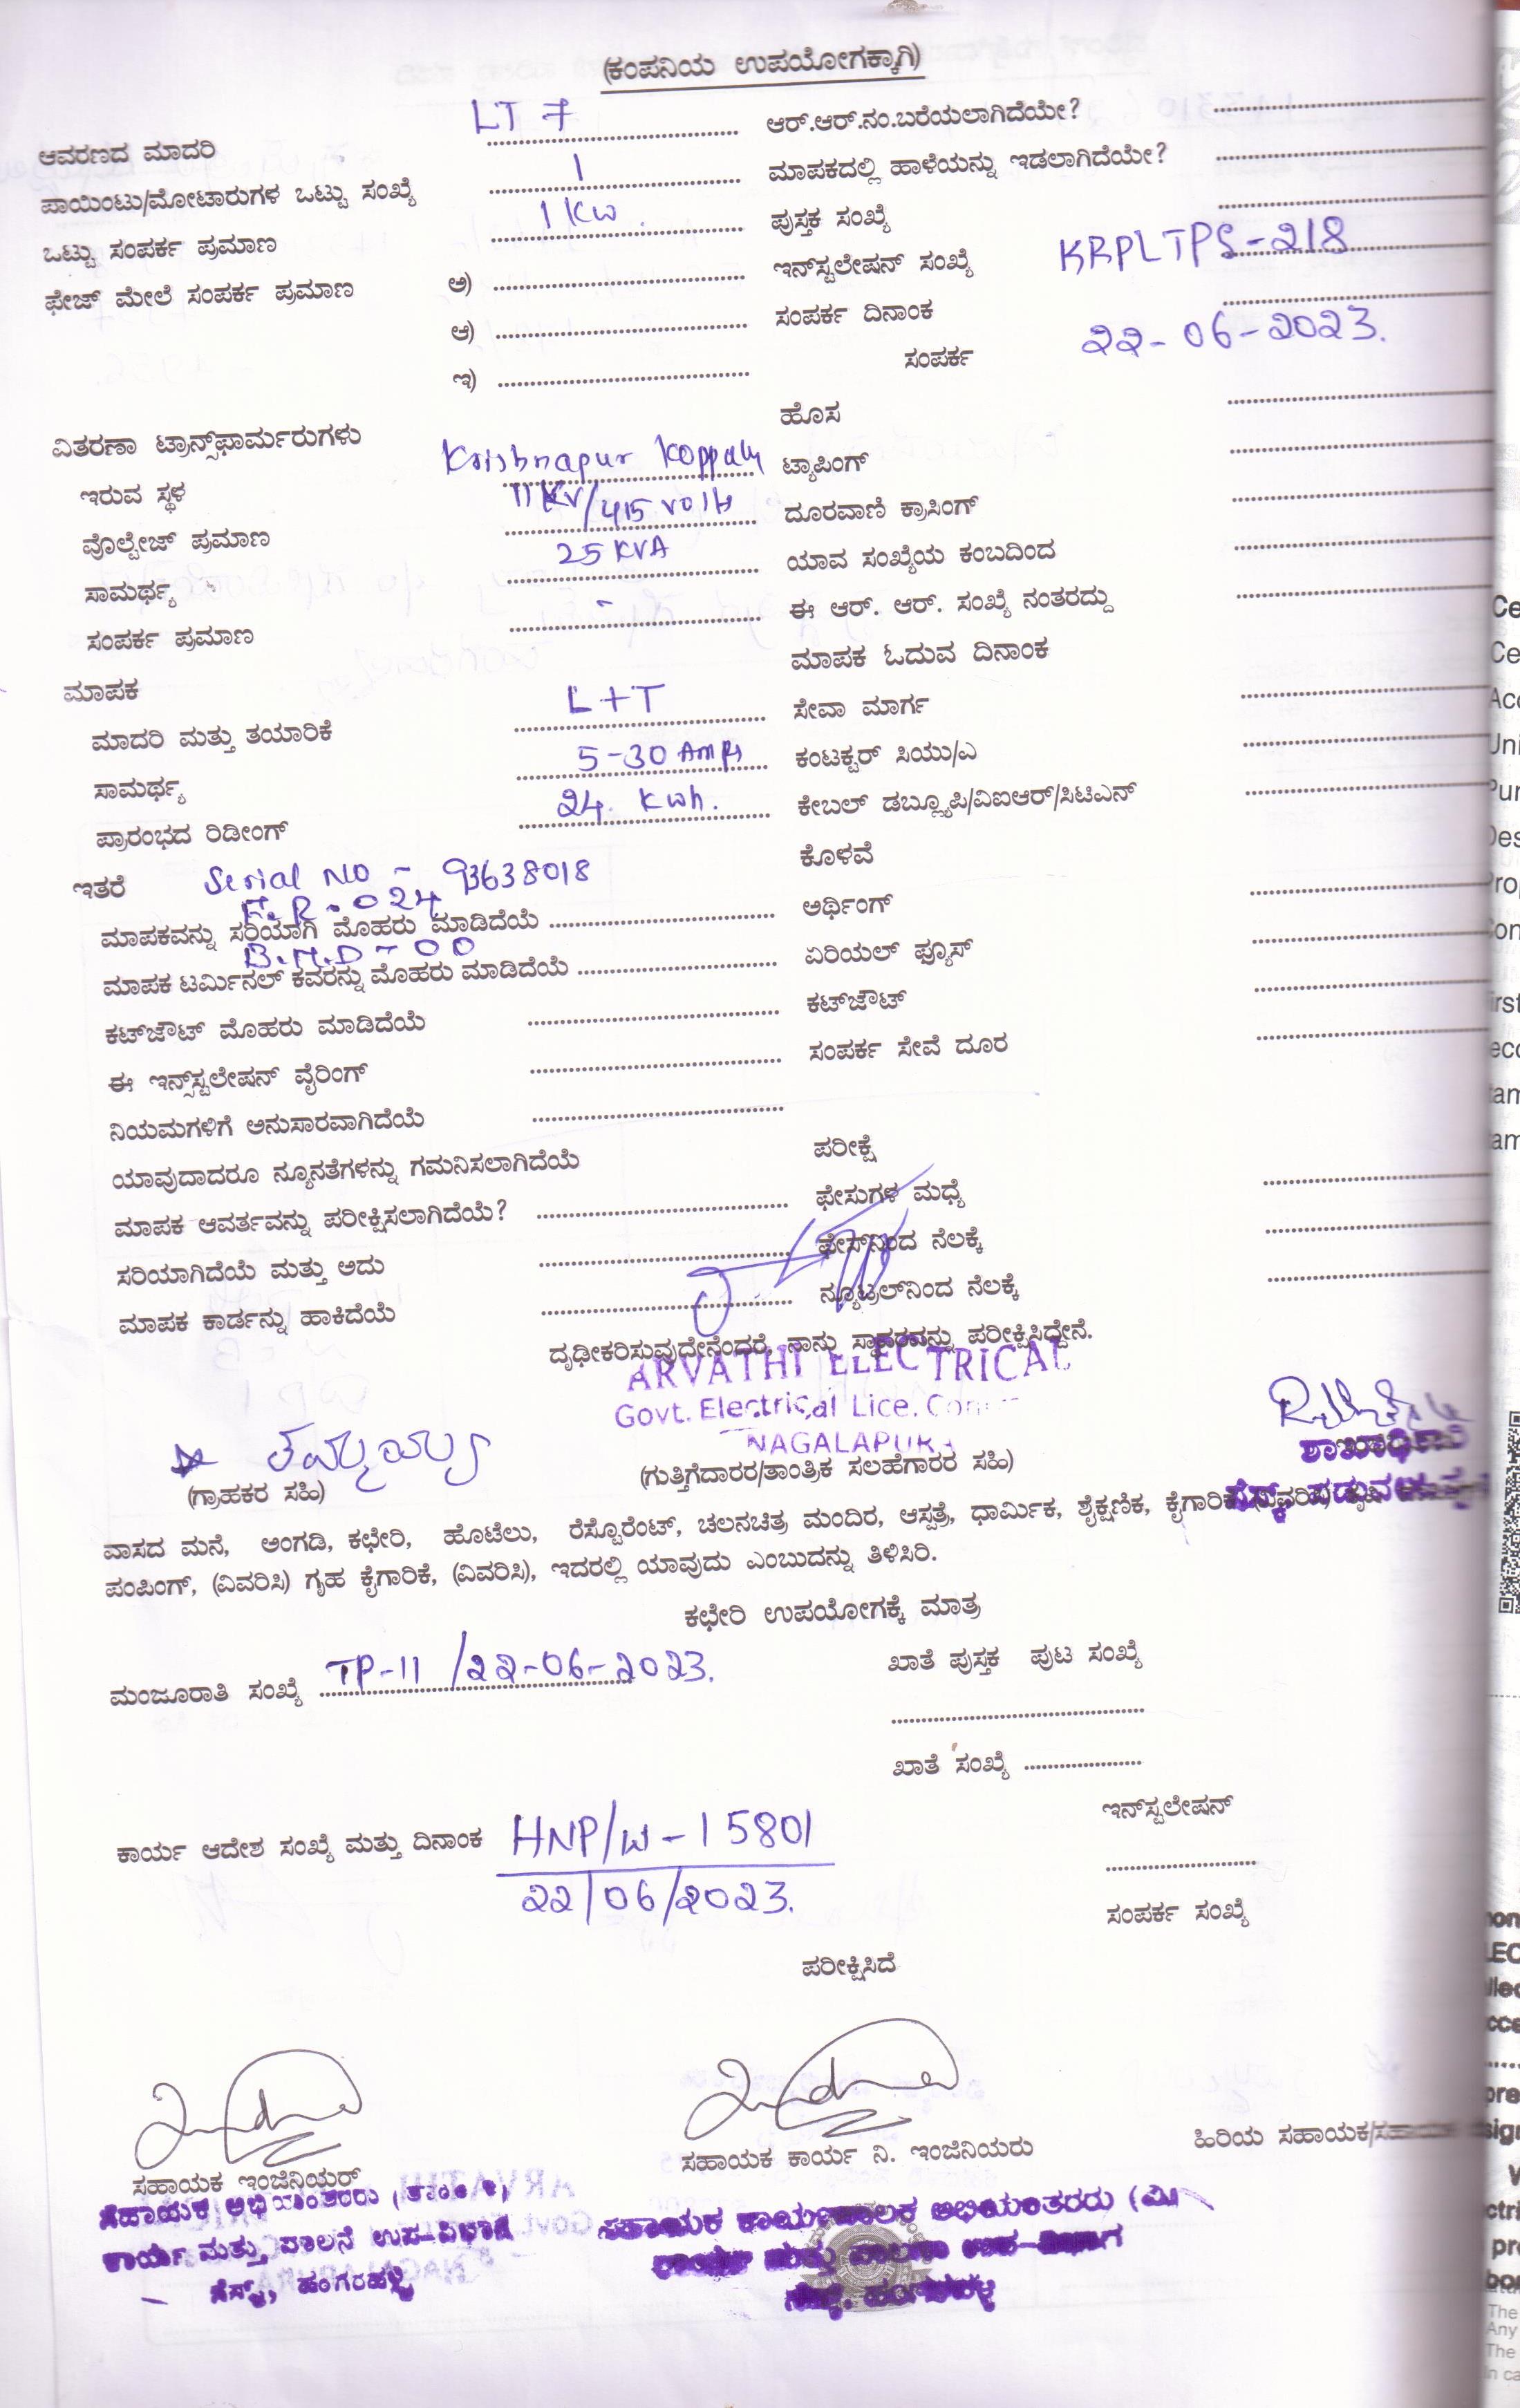 (ಕಂಪನಿಯ ಉಪಯೋಗಕ್ಕಾಗಿ)
ಆವರಣದ ಮಾದರಿ LT 7 ಆರ್.ಆರ್.ನಂ.ಬರೆಯಲಾಗಿದೆಯೇ?
ಪಾಯಿಂಟು/ಮೋಟಾರುಗಳ ಒಟ್ಟು ಸಂಖ್ಯೆ 1 ಮಾಪಕದಲ್ಲಿ ಹಾಳೆಯನ್ನು ಇಡಲಾಗಿದೆಯೇ?
ಒಟ್ಟು ಸಂಪರ್ಕ ಪ್ರಮಾಣ 1 KW. ಪುಸ್ತಕ ಸಂಖ್ಯೆ
ಫೇಜ್ ಮೇಲೆ ಸಂಪರ್ಕ ಪ್ರಮಾಣ ಅ) ಇನ್‌ಸ್ಟಲೇಷನ್ ಸಂಖ್ಯೆ KRPLTPS-218
ಆ) ಸಂಪರ್ಕ ದಿನಾಂಕ 22-06-2023.
ಇ) ಸಂಪರ್ಕ
ವಿತರಣಾ ಟ್ರಾನ್ಸ್‌ಫಾರ್ಮರುಗಳು ಹೊಸ
ಇರುವ ಸ್ಥಳ Krishnapur Koppalu ಟ್ಯಾಪಿಂಗ್
ವೊಲ್ಟೇಜ್ ಪ್ರಮಾಣ 11KV/415 volts ದೂರವಾಣಿ ಕ್ರಾಸಿಂಗ್
ಸಾಮರ್ಥ್ಯ 25 KVA ಯಾವ ಸಂಖ್ಯೆಯ ಕಂಬದಿಂದ
ಸಂಪರ್ಕ ಪ್ರಮಾಣ - ಈ ಆರ್. ಆರ್. ಸಂಖ್ಯೆ ನಂತರದ್ದು
ಮಾಪಕ ಮಾಪಕ ಓದುವ ದಿನಾಂಕ
ಮಾದರಿ ಮತ್ತು ತಯಾರಿಕೆ L+T ಸೇವಾ ಮಾರ್ಗ
ಸಾಮರ್ಥ್ಯ 5-30 Amps ಕಂಟಕ್ಟರ್ ಸಿಯು/ಎ
ಪ್ರಾರಂಭದ ರಿಡೀಂಗ್ 24. Kwh. ಕೇಬಲ್ ಡಬ್ಲ್ಯೂಪಿ/ವಿಐಆರ್/ಸಿಟಿಎನ್
ಇತರೆ Serial NO - 93638018 ಕೊಳವೆ
F.R. - 024
ಮಾಪಕವನ್ನು ಸರಿಯಾಗಿ ಮೊಹರು ಮಾಡಿದೆಯೆ ಅರ್ಥಿಂಗ್
B.M.D - 00
ಮಾಪಕ ಟರ್ಮಿನಲ್ ಕವರನ್ನು ಮೊಹರು ಮಾಡಿದೆಯೆ ಏರಿಯಲ್ ಫ್ಯೂಸ್
ಕಟ್‌ಜೌಟ್ ಮೊಹರು ಮಾಡಿದೆಯೆ ಕಟ್‌ಜೌಟ್
ಈ ಇನ್ಸ್‌ಸ್ಟಲೇಷನ್ ವೈರಿಂಗ್ ಸಂಪರ್ಕ ಸೇವೆ ದೂರ
ನಿಯಮಗಳಿಗೆ ಅನುಸಾರವಾಗಿದೆಯೆ
ಯಾವುದಾದರೂ ನ್ಯೂನತೆಗಳನ್ನು ಗಮನಿಸಲಾಗಿದೆಯೆ ಪರೀಕ್ಷೆ
ಮಾಪಕ ಆವರ್ತವನ್ನು ಪರೀಕ್ಷಿಸಲಾಗಿದೆಯೆ? ಫೇಸುಗಳ ಮಧ್ಯೆ
ಸರಿಯಾಗಿದೆಯೆ ಮತ್ತು ಅದು ಫೇಸ್‌ನಿಂದ ನೆಲಕ್ಕೆ
ಮಾಪಕ ಕಾರ್ಡನ್ನು ಹಾಕಿದೆಯೆ ನ್ಯೂಟ್ರಲ್‌ನಿಂದ ನೆಲಕ್ಕೆ
ದೃಢೀಕರಿಸುವುದೇನೆಂದರೆ, ನಾನು ಸ್ಥಾವರವನ್ನು ಪರೀಕ್ಷಿಸಿದ್ದೇನೆ.
ARVATHI ELECTRICAL
Govt. Electrical Lice.
NAGALAPURA
ತಮ್ಮಯ್ಯ
(ಗ್ರಾಹಕರ ಸಹಿ) (ಗುತ್ತಿಗೆದಾರರ/ತಾಂತ್ರಿಕ ಸಲಹೆಗಾರರ ಸಹಿ)
ಶಾಖಾಧಿಕಾರಿ
ವಾಸದ ಮನೆ, ಅಂಗಡಿ, ಕಛೇರಿ, ಹೊಟೆಲು, ರೆಸ್ಟೊರೆಂಟ್, ಚಲನಚಿತ್ರ ಮಂದಿರ, ಆಸ್ಪತ್ರೆ, ಧಾರ್ಮಿಕ, ಶೈಕ್ಷಣಿಕ, ಕೈಗಾರಿಕೆ
ಪಂಪಿಂಗ್, (ವಿವರಿಸಿ) ಗೃಹ ಕೈಗಾರಿಕೆ, (ವಿವರಿಸಿ), ಇದರಲ್ಲಿ ಯಾವುದು ಎಂಬುದನ್ನು ತಿಳಿಸಿರಿ.
ಕಛೇರಿ ಉಪಯೋಗಕ್ಕೆ ಮಾತ್ರ
ಮಂಜೂರಾತಿ ಸಂಖ್ಯೆ TP-11 /22-06-2023. ಖಾತೆ ಪುಸ್ತಕ ಪುಟ ಸಂಖ್ಯೆ
ಖಾತೆ ಸಂಖ್ಯೆ
ಇನ್‌ಸ್ಟಲೇಷನ್
ಕಾರ್ಯ ಆದೇಶ ಸಂಖ್ಯೆ ಮತ್ತು ದಿನಾಂಕ HNP/W-15801
22/06/2023.
ಸಂಪರ್ಕ ಸಂಖ್ಯೆ
ಪರೀಕ್ಷಿಸಿದೆ
ಸಹಾಯಕ ಇಂಜಿನಿಯರ್ ಸಹಾಯಕ ಕಾರ್ಯ ನಿ. ಇಂಜಿನಿಯರು ಹಿರಿಯ ಸಹಾಯಕ/
ಸಹಾಯಕ ಅಭಿಯಂತರರು (ತಾಂತ್ರಿಕ)
ಕಾರ್ಯ ಮತ್ತು ಪಾಲನೆ ಉಪ-ವಿಭಾಗ
ಸೆಸ್ಕ್, ಹಂಗರಹಳ್ಳಿ
ಸಹಾಯಕ ಕಾರ್ಯಪಾಲಕ ಅಭಿಯಂತರರು (ವಿ)